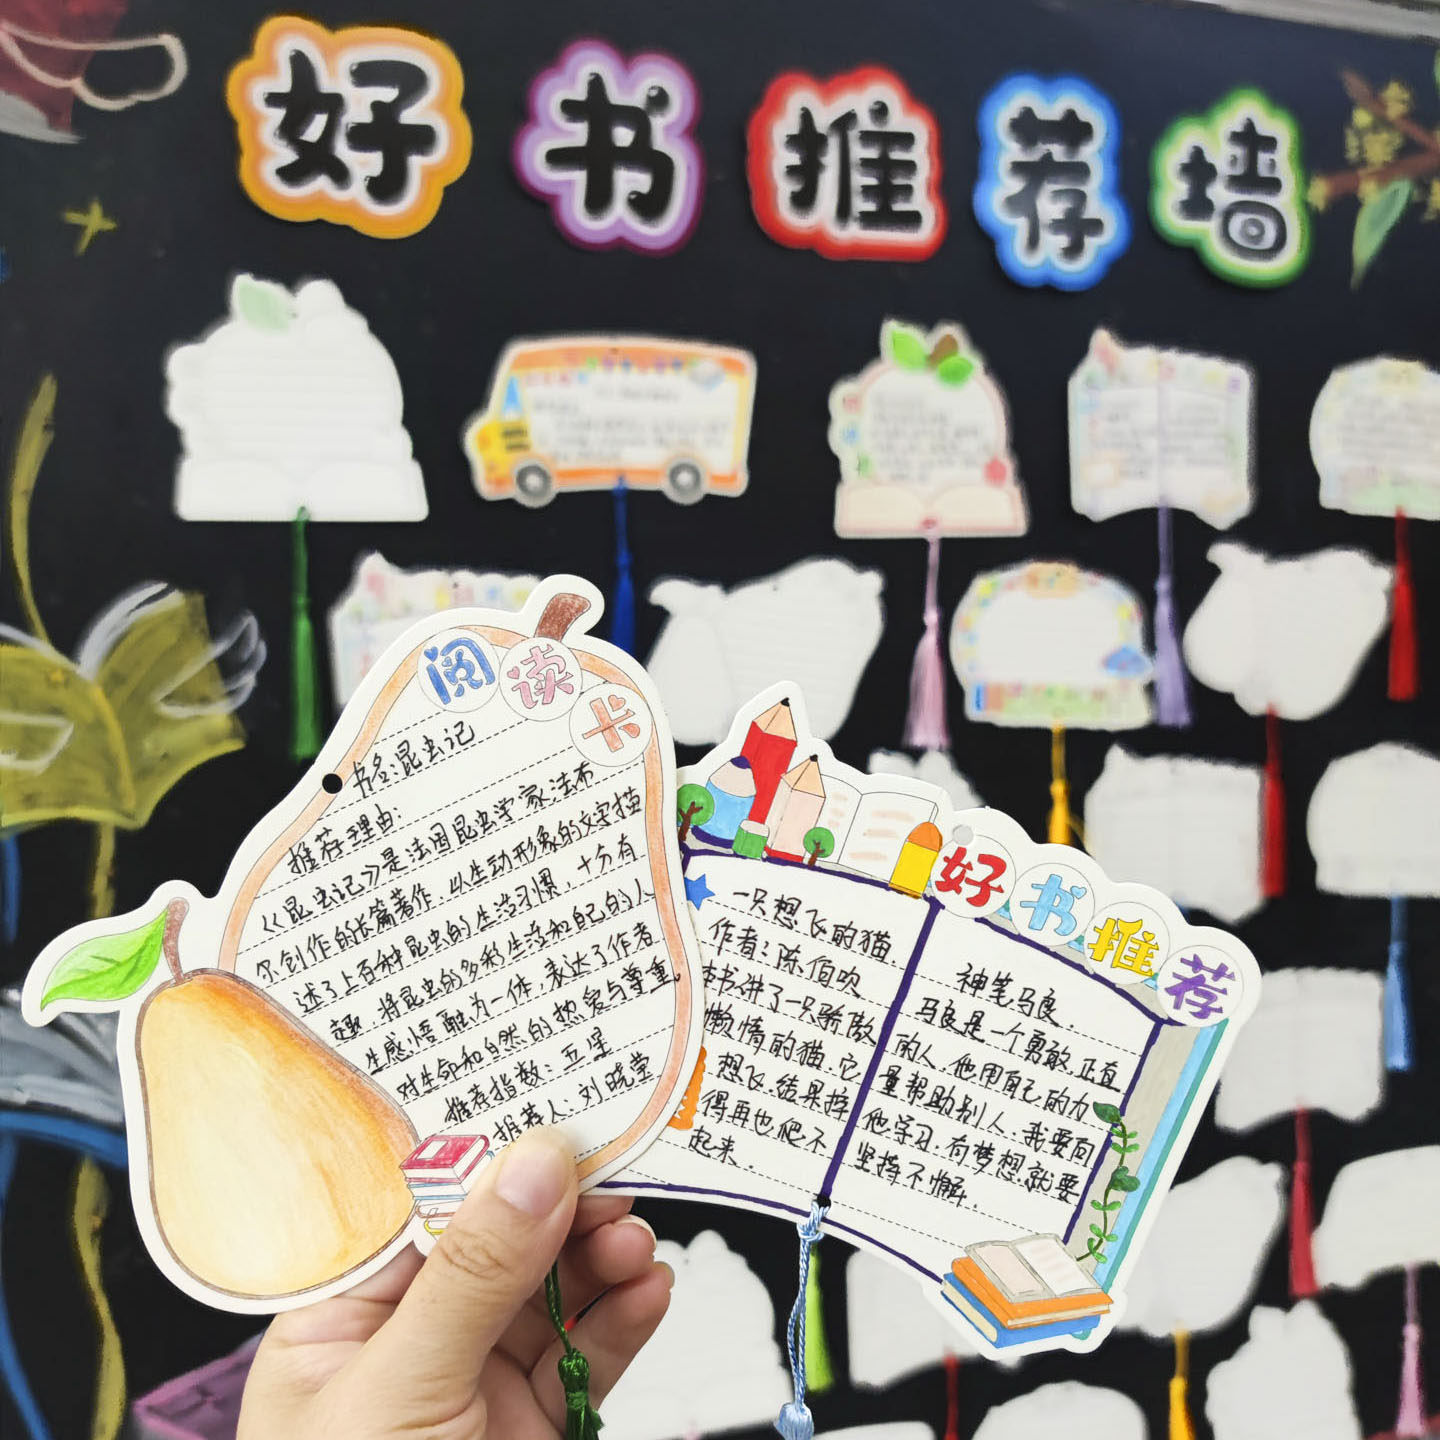 好书推荐墙
阅读卡
书名:昆虫记
推荐理由:
《昆虫记》是法国昆虫学家法布
尔创作的长篇著作.以生动形象的文字描
述了上百种昆虫的生活习惯,十分有
趣.将昆虫的多彩生活和自己的人
生感悟融为一体,表达了作者
对生命和自然的热爱与尊重。
推荐指数:五星
推荐人:刘晓莹
好书推荐
一只想飞的猫.
作者:陈伯吹
本书讲了一只骄傲
懒惰的猫.它
想飞.结果摔
得再也爬不
起来.
神笔马良
马良是一个勇敢.正直
的人.他用自己的力
量帮助别人.我要向
他学习.有梦想.就要
坚持不懈.